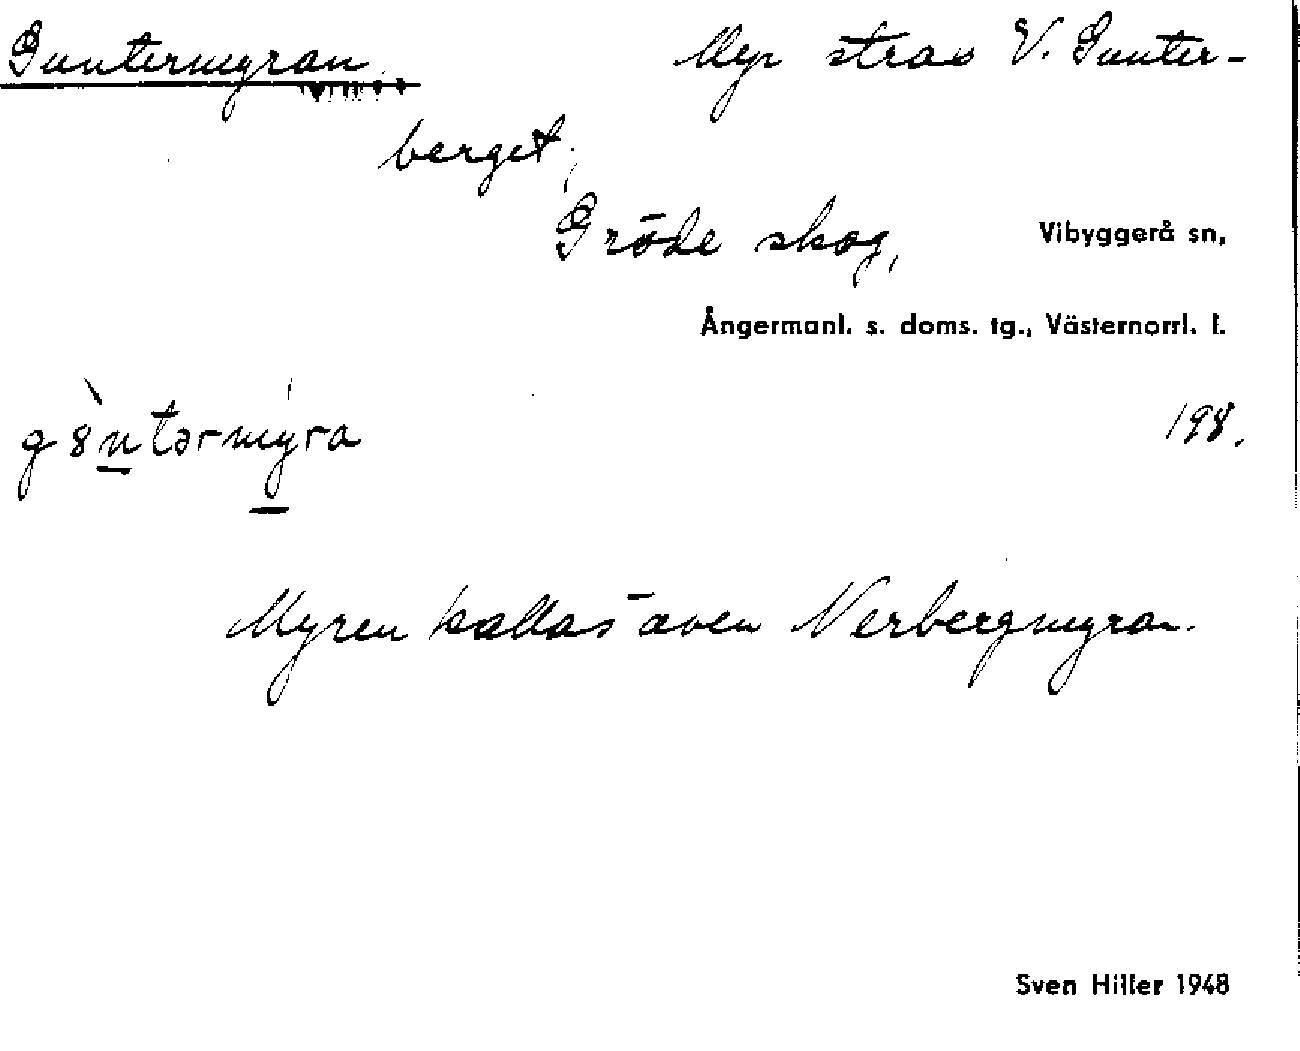 Guntermyran. Myr strax V. Gunter-
berget,
Gröde skog, Vibyggerå sn,
Ångermanl. s. doms. tg., Västernorrl. l.
g8̀ntərmy̍ra 198.
Myren kallas även Nerbergmyran.
Sven Hiller 1948